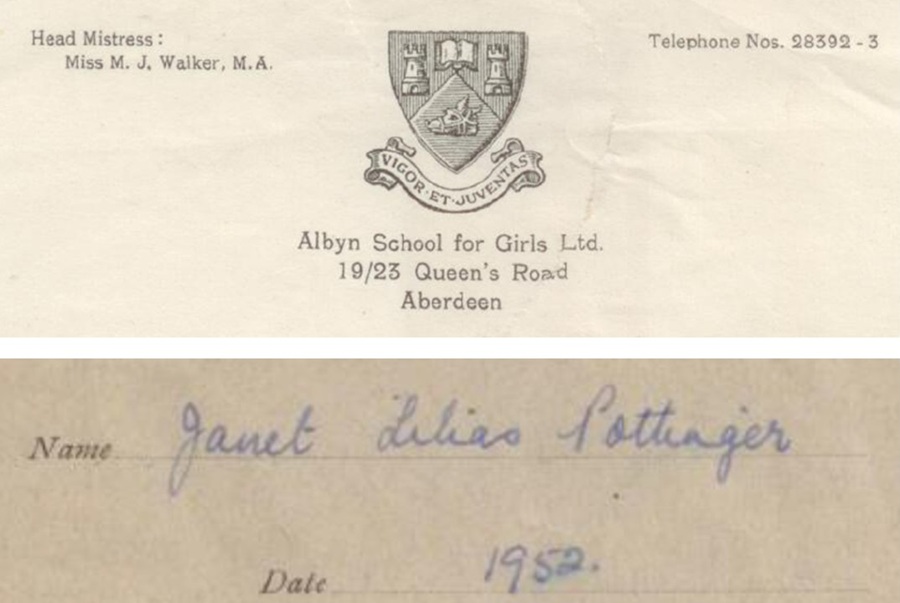 Head Mistress:
Miss M. J. Walker, M.A.
Telephone Nos. 28392 - 3
VIGOR · ET · JUVENTAS
Albyn School for Girls Ltd.
19/23 Queen's Road
Aberdeen
Name Janet Lilias Pottinger
Date 1952.